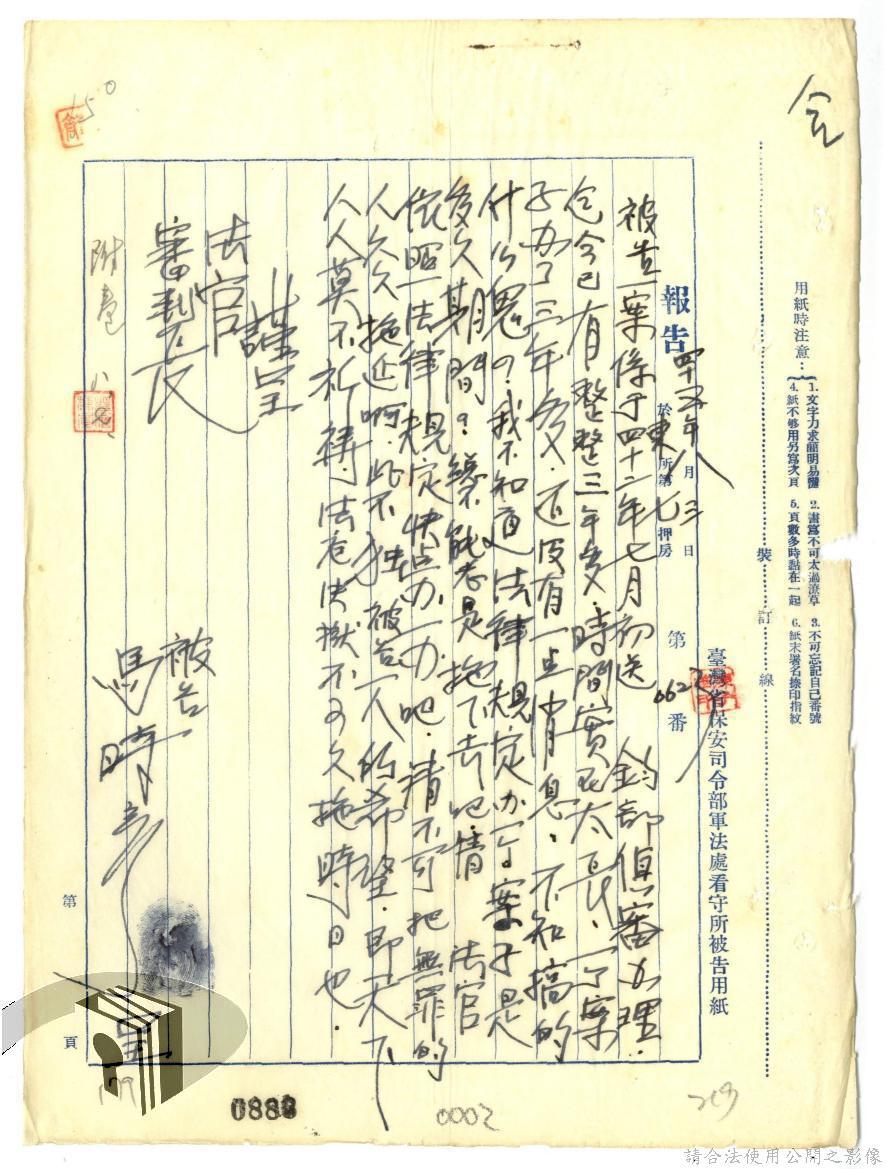 仝
用紙時注意：
1. 文字力求簡明易懂　2. 書寫不可太過潦草　3. 不可忘記自己番號
4. 紙不够用另寫次頁　5. 頁數多時黏在一起　6. 紙末署名捺印指紋
裝訂線
臺灣省保安司令部軍法處看守所被告用紙
報告 四十五年八月三日 於東所第七押房 第062番
被告一案係于四十二年七月初送　鈞部俱審办理．
迄今已有整整三年多，時間實在太長，一了案
子办了三年多，还没有一点消息，不知搞的
什么鬼？我不知道法律規定办一个案子是
多久期間？總不能老是拖下去吧．請　法官
依照法律規定快点办一办吧．請不可把無罪的
人久久拖延啊．此不独被告一人的希望，即天下
人人莫不祈祷．法官決獄不可久拖時日也．
謹呈
法官
審判長
被告
馬時彥 呈
附卷 八
第 頁
150
179
0888
0002
269
請合法使用公開之影像